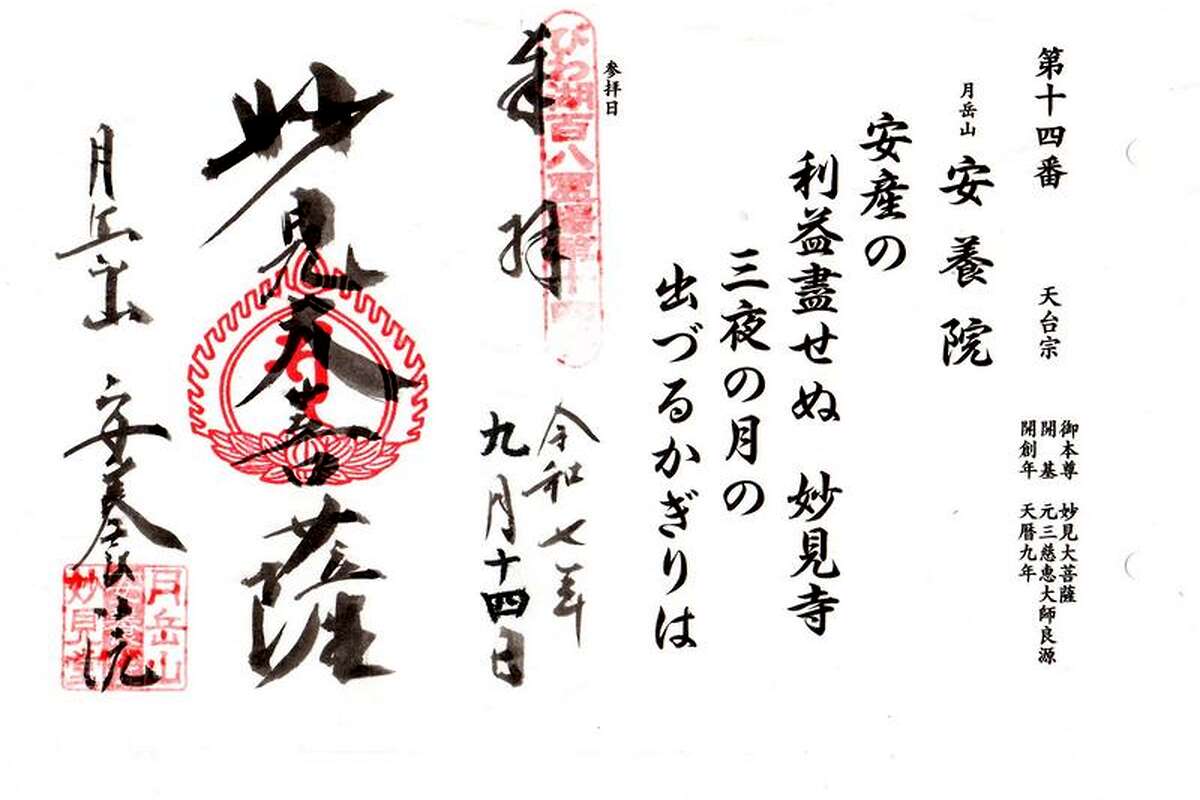 第十四番　天台宗
御本尊　妙見大菩薩
開　基　元三慈恵大師良源
開創年　天暦九年
月岳山　安養院
安産の
利益盡せぬ　妙見寺
三夜の月の
出づるかぎりは
参拝日
奉拝
びわ湖百八霊場第十四番
令和七年
九月十四日
妙見大菩薩
月岳山　安養院
月岳山
妙見堂